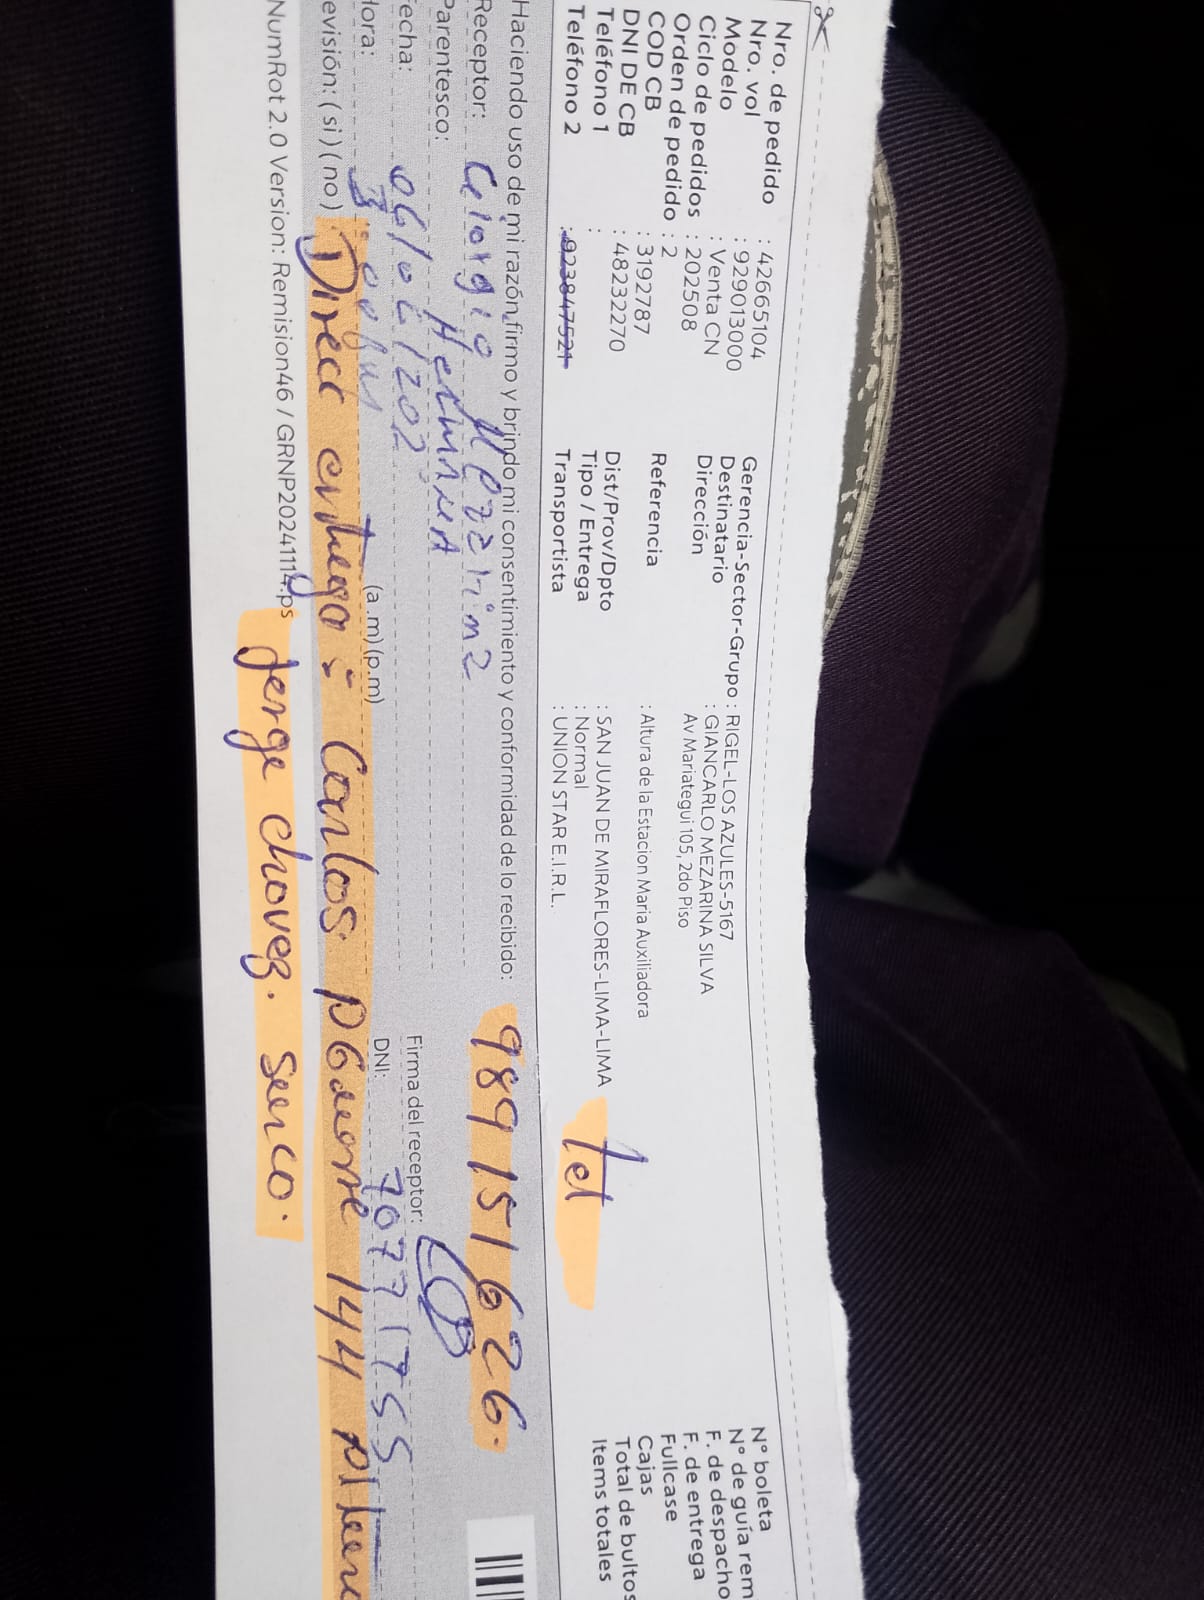 Nro. de pedido : 42665104
Nro. vol : 929013000
Modelo : Venta CN
Ciclo de pedidos : 202508
Orden de pedido : 2
COD CB : 3192787
DNI DE CB : 48232270
Teléfono 1 :
Teléfono 2 : 923847521
Gerencia-Sector-Grupo : RIGEL-LOS AZULES-5167
Destinatario : GIANCARLO MEZARINA SILVA
Dirección Av Mariategui 105, 2do Piso
Referencia : Altura de la Estacion Maria Auxiliadora
Dist/Prov/Dpto : SAN JUAN DE MIRAFLORES-LIMA-LIMA
Tipo / Entrega : Normal
Transportista : UNION STAR E.I.R.L.
Tel
N° boleta
N° de guía rem
F. de despacho
F. de entrega
Fullcase
Cajas
Total de bultos
Items totales
Haciendo uso de mi razón, firmo y brindo mi consentimiento y conformidad de lo recibido:
989151626.
Receptor: Giorgio Mezarina
Parentesco: Hermana
echa: 06/06/202
Hora: (a.m)(p.m)
Firma del receptor:
DNI: 70771755
evisión: ( si ) ( no ) Direcc entrega: Carlos 144
NumRot 2.0 Version: Remision46 / GRNP20241114.ps Jorge Chavez. Surco.